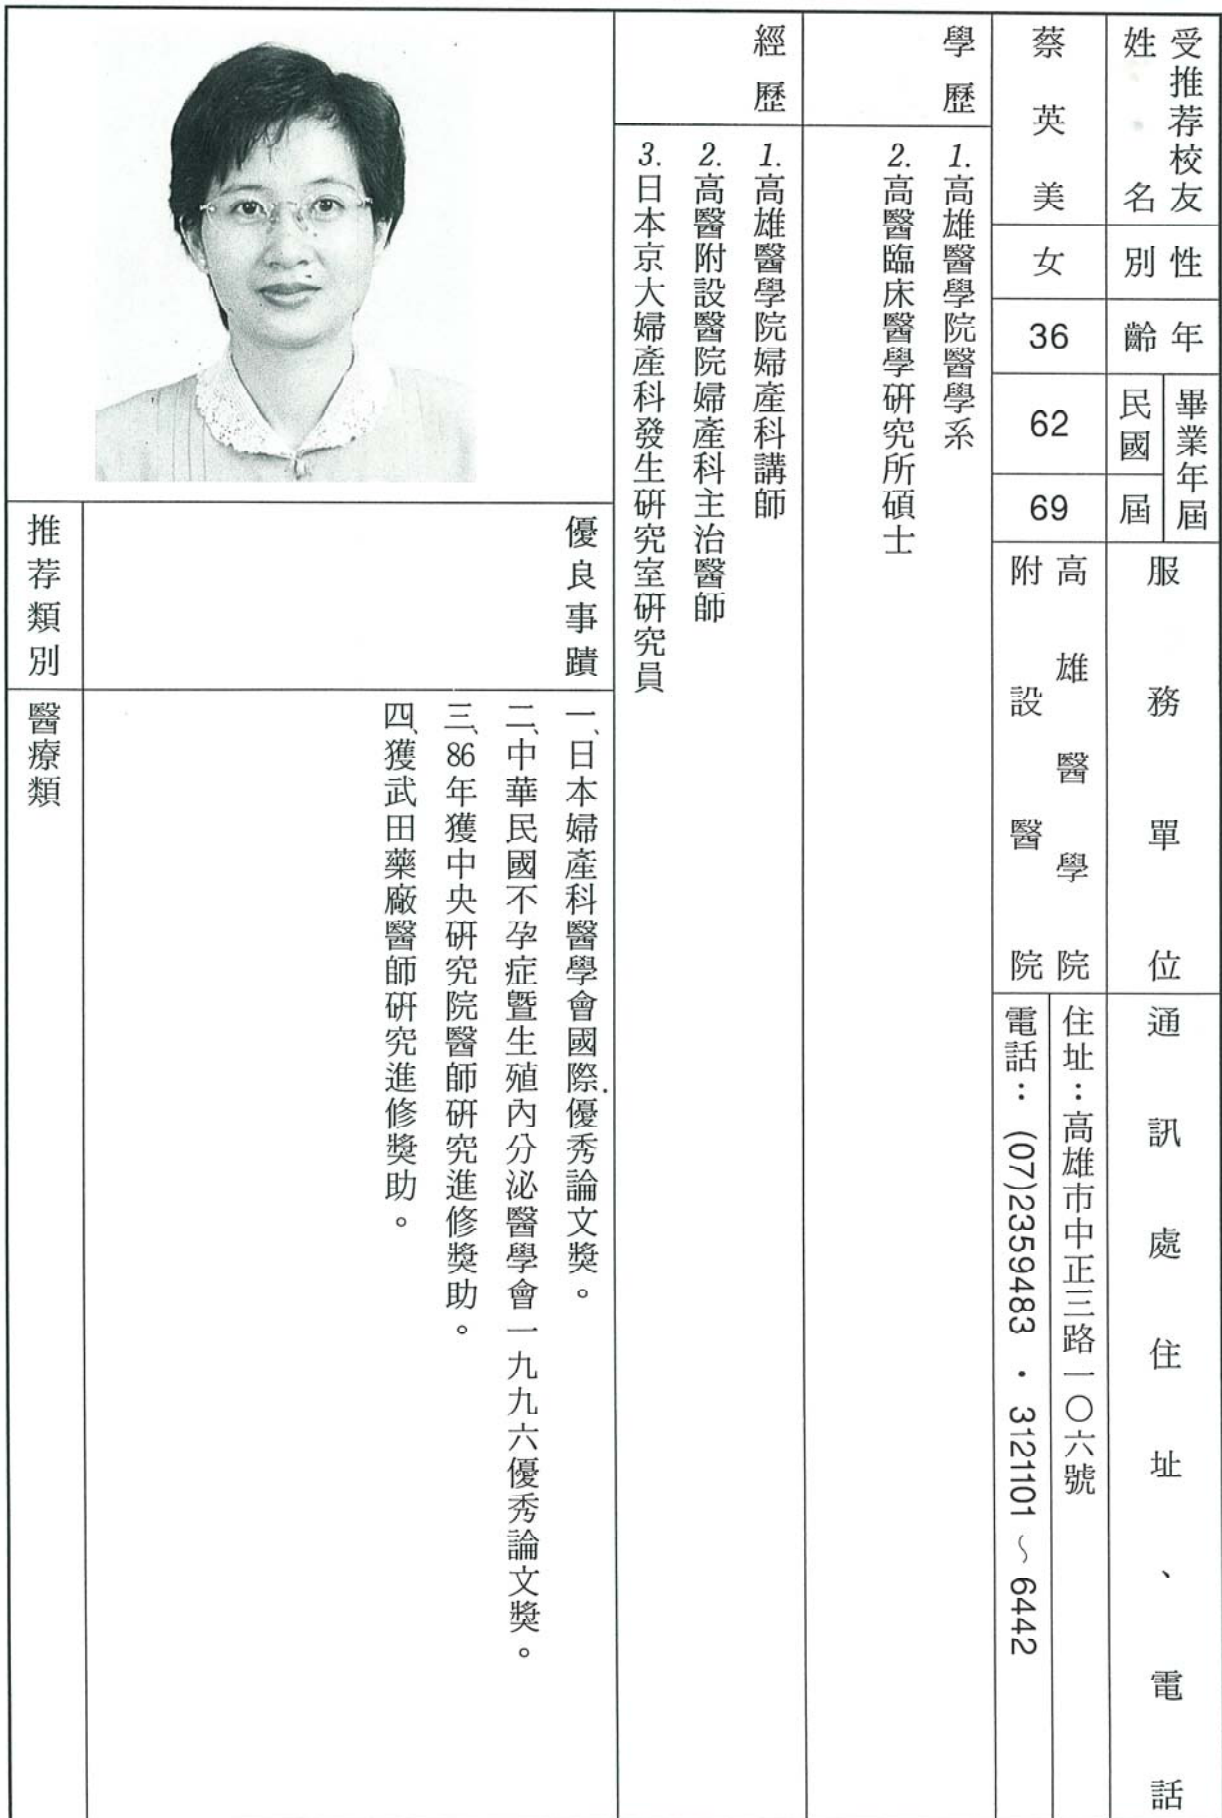 受推荐校友
姓名
性別
年齡
畢業年屆
民國
屆
服務單位
通訊處住址、電話
蔡英美
女
36
62
69
高雄醫學院
附設醫院
住址：高雄市中正三路一〇六號
電話：(07)2359483・3121101～6442
學歷
1.高雄醫學院醫學系
2.高醫臨床醫學研究所碩士
經歷
1.高雄醫學院婦產科講師
2.高醫附設醫院婦產科主治醫師
3.日本京大婦產科發生研究室研究員
優良事蹟
一、日本婦產科醫學會國際優秀論文獎。
二、中華民國不孕症暨生殖內分泌醫學會一九九六優秀論文獎。
三、86年獲中央研究院醫師研究進修獎助。
四、獲武田藥廠醫師研究進修獎助。
推荐類別
醫療類